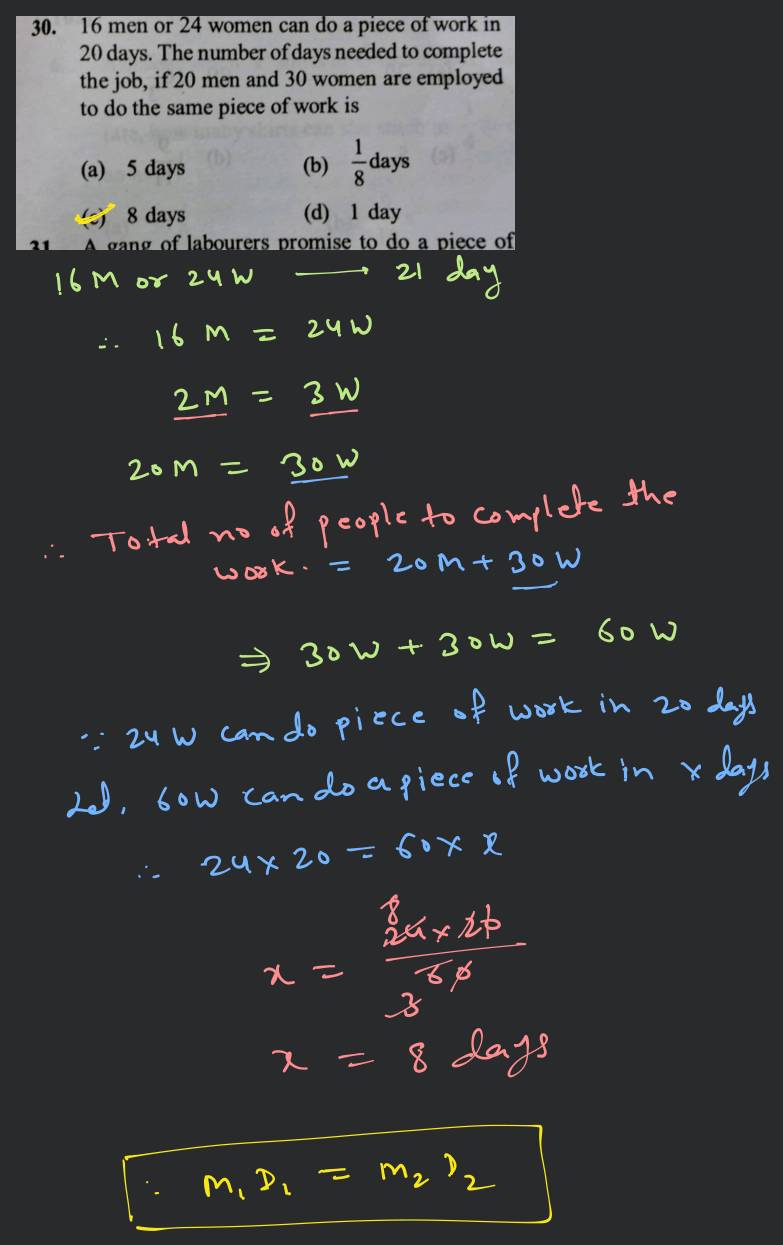 30. 16 men or 24 women can do a piece of work in
20 days. The number of days needed to complete
the job, if 20 men and 30 women are employed
to do the same piece of work is
(a) 5 days (b) 1/8 days
(c) 8 days (d) 1 day
31 A gang of labourers promise to do a piece of
16 M or 24 W → 21 day
∴ 16 M = 24 W
2 M = 3 W
20 M = 30 W
∴ Total no of people to complete the
work. = 20 M + 30 W
⇒ 30 W + 30 W = 60 W
∵ 24 W can do piece of work in 20 days
Let, 60 W can do a piece of work in x days
∴ 24 × 20 = 60 × x
8
x = 24 × 20 / 60
3
x = 8 days
∴ M₁ D₁ = M₂ D₂